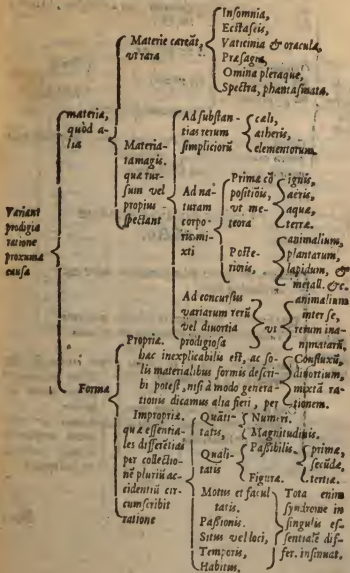 Variant
prodigia
ratione
proxima
causa
materia,
quòd a-
lia
Materie careāt,
vt rara
Insomnia,
Ecstaseis,
Vaticinia & oracula,
Præsagia,
Omina pleraque,
Spectra, phantasmata.
Materia-
tamagis.
quæ rur-
sum vel
propius
spectant
Ad substan-
tias rerum
simpliciorū
cæli,
ætheris,
elementorum.
Ad na-
turam
corpo-
ris mi-
xti
Primæ cō-
positiōis,
vt me-
teora
ignis,
aëris,
aquæ,
terræ.
Poste-
rioris,
animalium,
plantarum,
lapidum, &
metall. &c.
Ad concursus
variarum rerū
vel diuortia
prodigiosa
vt
animalium
inter se,
rerum ina-
nimatarū.
Forma
Propriæ.
hæc inexplicabilis est, ac so-
lis materialibus formis descri-
bi potest, nisi à modo genera-
tionis dicamus alia fieri, per
Confluxū,
diuortium,
mixtā ra-
tionem.
Impropriæ.
quæ essentia-
les differētias
per collectio-
nē pluriū ac-
cidentiū cir-
cumscribit
ratione
Quāti-
tatis,
Numeri.
Magnitudinis.
Quali-
tatis
Passibilis
primæ,
secūdæ,
tertiæ.
Figuræ.
Motus et facul
tatis.
Passionis.
Situs vel loci,
Temporis,
Habitus.
Tota enim
syndrome in
singulis es-
sentialē dif-
fer. insinuat.